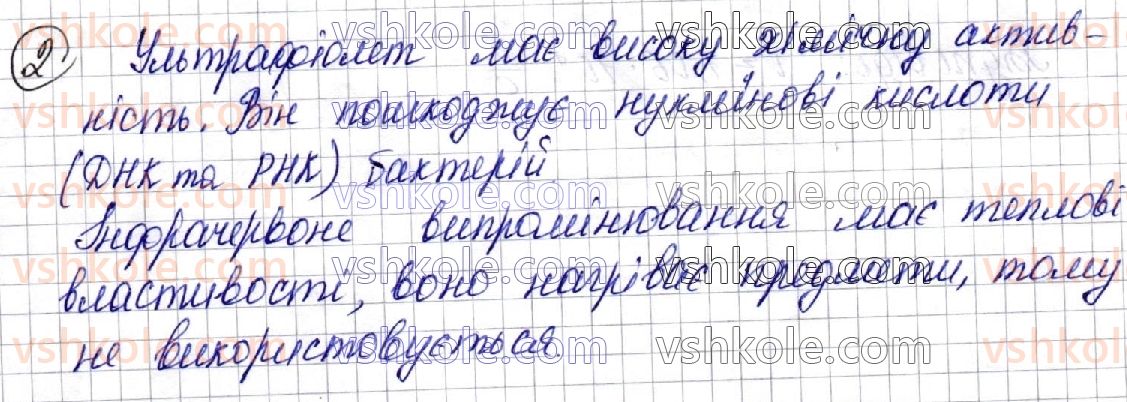 2 Ультрафіолет має високу хімічну актив-
ність. Він пошкоджує нуклеїнові кислоти
(ДНК та РНК) бактерій
Інфрачервоне випромінювання має теплові
властивості, воно нагріває предмети, тому
не використовується